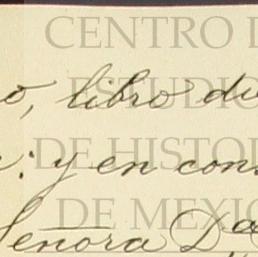 CENTRO D
o, libro du
ESTUDIO
DE HISTO
: y en cons
DE MEXIC
Señora Da